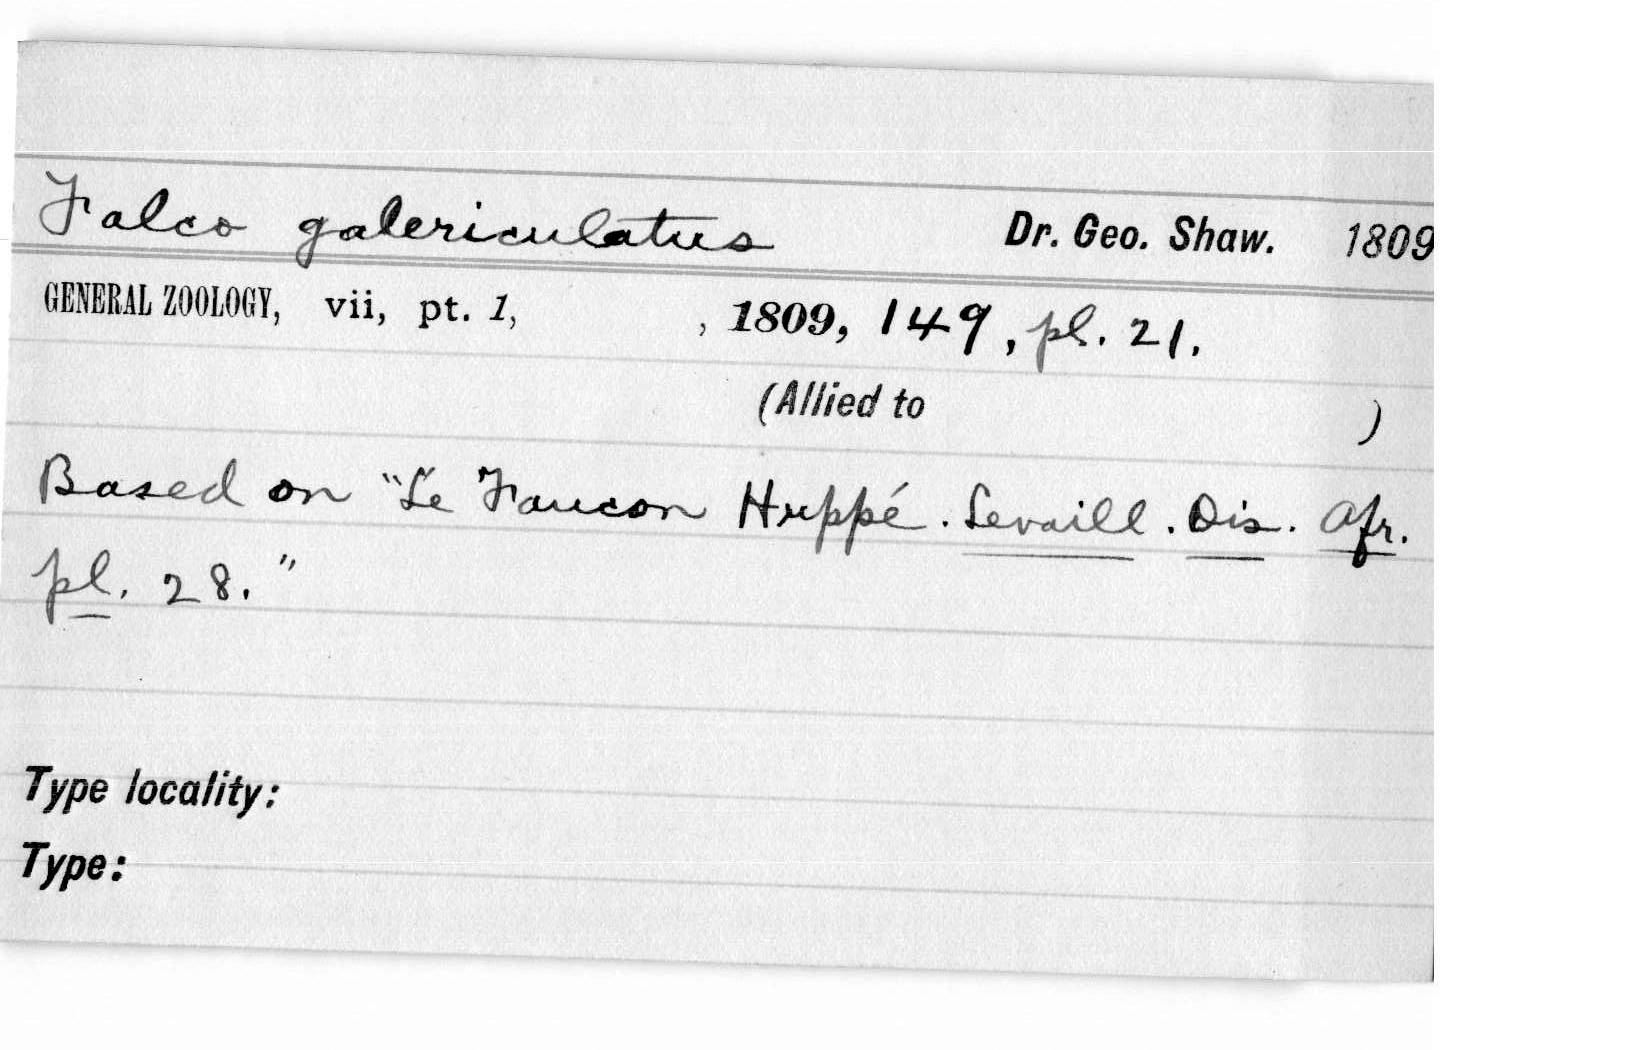 Falco galericulatus Dr. Geo. Shaw. 1809
GENERAL ZOOLOGY, vii, pt. 1, , 1809, 149, pl. 21.
(Allied to )
Based on "Le Faucon Huppé. Levaill. Ois. Afr.
pl. 28."
Type locality:
Type: